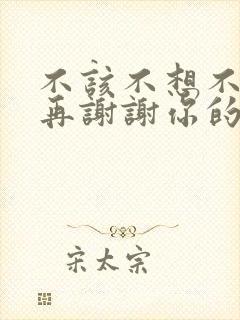 不該不想不
再謝謝你的
宋太宗